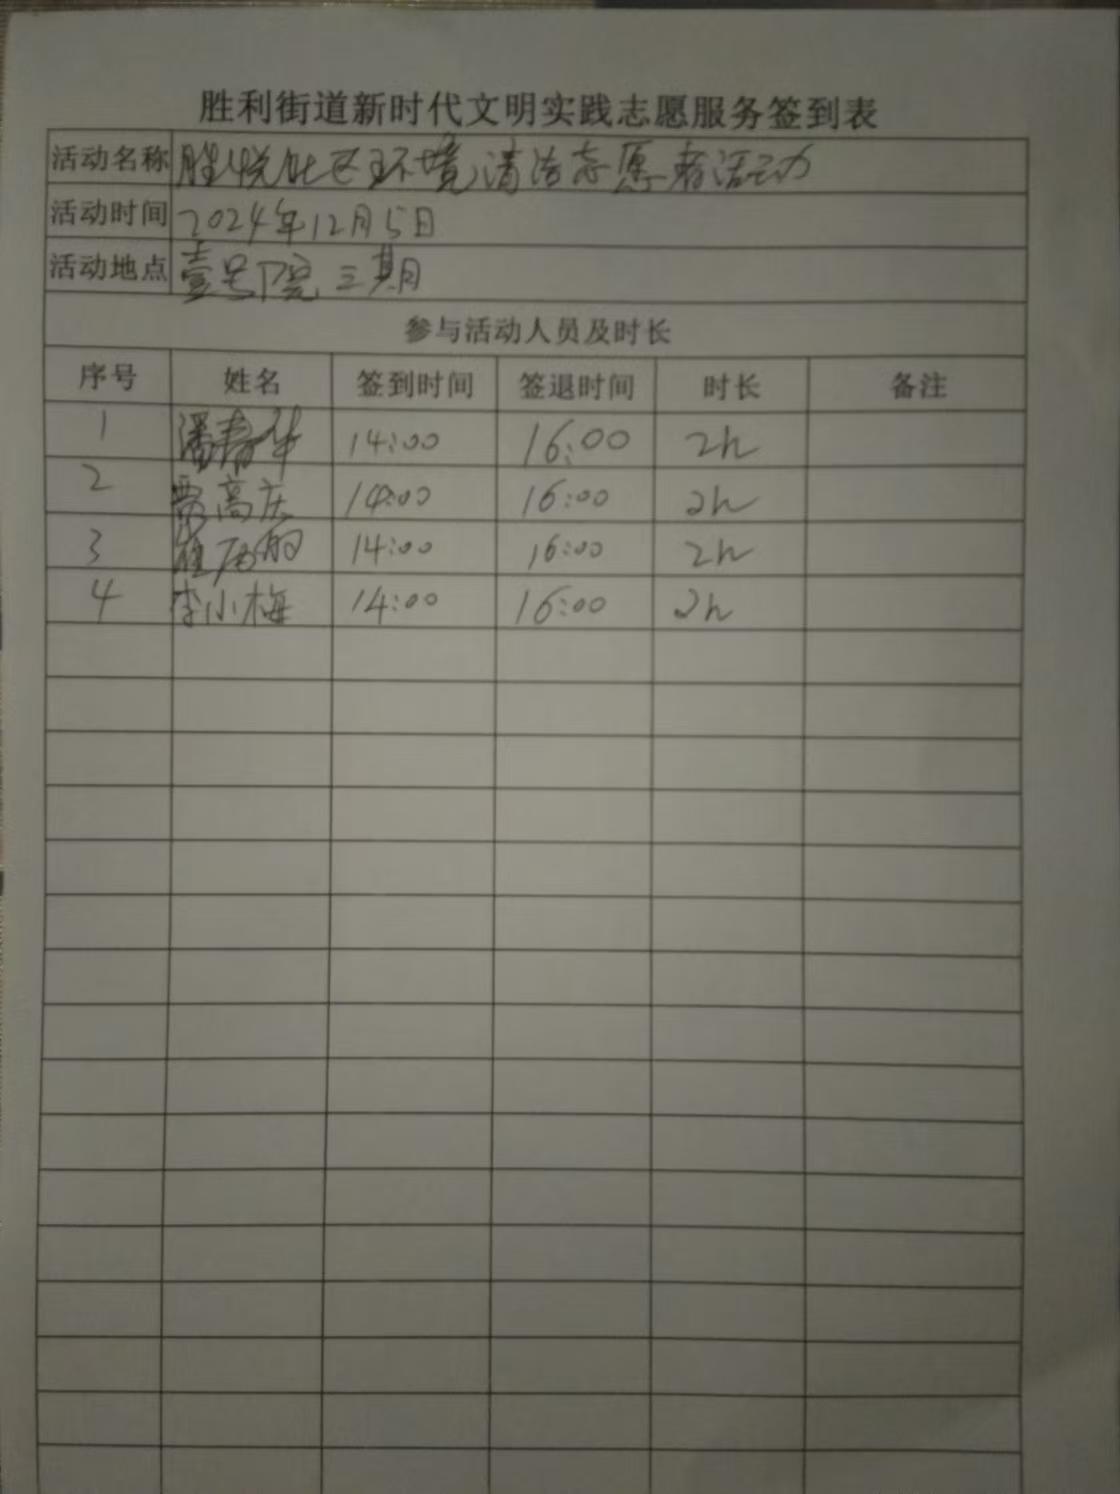 胜利街道新时代文明实践志愿服务签到表
活动名称 胜悦社区环境清洁志愿者活动
活动时间 2024年12月5日
活动地点 壹号院三期
参与活动人员及时长
序号 姓名 签到时间 签退时间 时长 备注
1 潘春华 14:00 16:00 2h
2 贾高庆 14:00 16:00 2h
3 14:00 16:00 2h
4 李小梅 14:00 16:00 2h